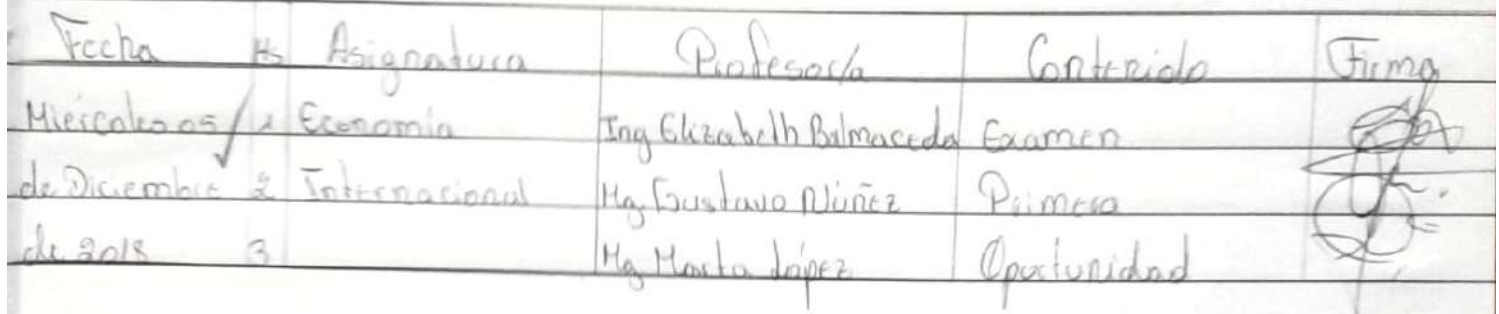 Fecha Hs Asignatura Profesor/a Contenido Firma
Miércoles 05 1 Economía Ing Elizabeth Balmaceda Examen
de Diciembre 2 Internacional Mg Gustavo Núñez Primera
de 2018 3 Mg Marta López Oportunidad